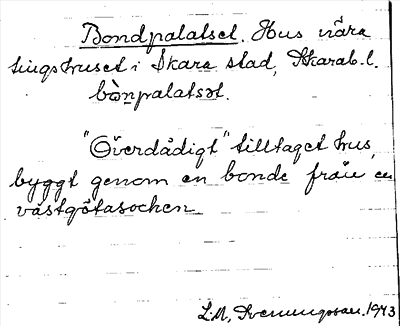 Bondpalatset. Hus nära
tingshuset i Skara stad, Skarab. l.
bònpalatsət.
"Överdådigt" tilltaget hus,
byggt genom en bonde från en
västgötasocken
L.M. Svenungsson. 1943